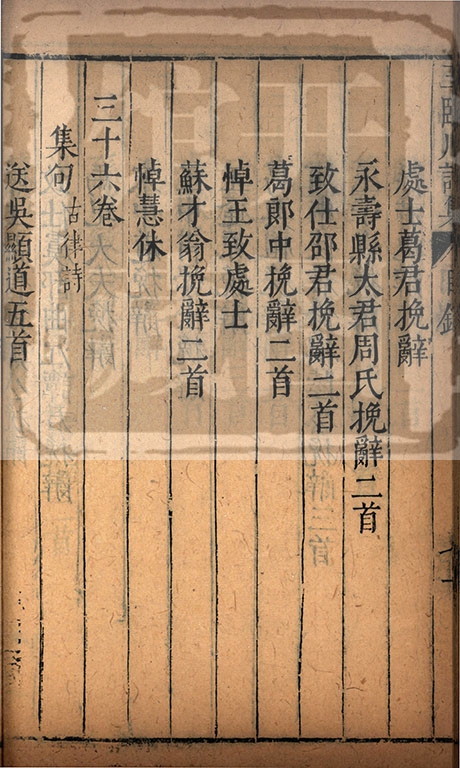 王臨川詩集 目錄
處士葛君挽辭
永壽縣太君周氏挽辭二首
致仕邵君挽辭二首
葛郎中挽辭二首
悼王致處士
蘇才翁挽辭二首
悼慧休
三十六卷
集句古律詩
送吳顯道五首